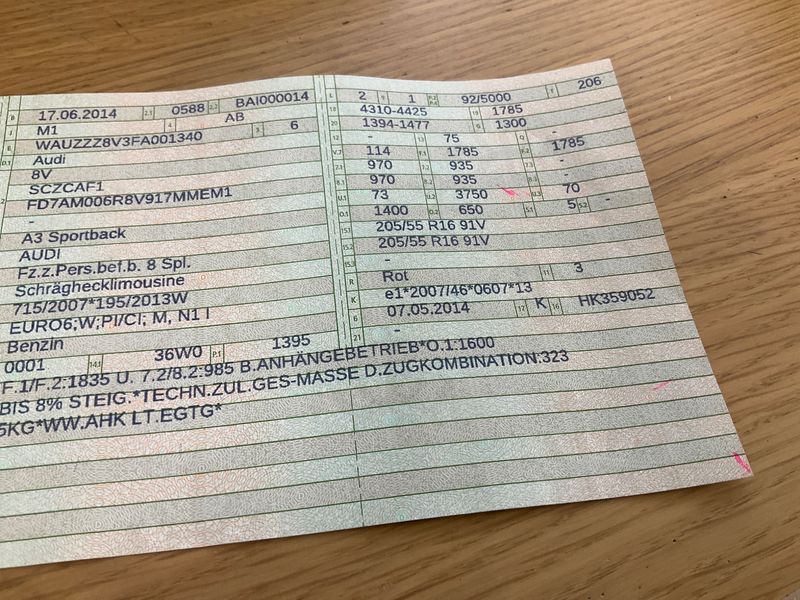 B 17.06.2014 2.1 0588 2.2 BAI000014
J M1 4 AB
E WAUZZZ8V3FA001340 3 6
D.1 Audi
8V
SCZCAF1
FD7AM006R8V917MMEM1
-
A3 Sportback
AUDI
Fz.z.Pers.bef.b. 8 Spl.
Schräghecklimousine
715/2007*195/2013W
EURO6;W;PI/CI; M, N1 I
Benzin
0001 14.1 36W0 P.1 1395
L 2 9 1 P.2 P.4 92/5000 T 206
18 4310-4425 19 1785
20 1394-1477 G 1300
12 - 13 75 Q -
V.7 114 F.1 1785 F.2 1785
7.1 970 7.2 935 7.3 -
8.1 970 8.2 935 8.3 -
U.1 73 U.2 3750 U.3 70
O.1 1400 O.2 650 S.1 5 S.2 -
15.1 205/55 R16 91V
15.2 205/55 R16 91V
15.3 -
R Rot 11 3
K e1*2007/46*0607*13
6 07.05.2014 17 K 16 HK359052
21 -
F.1/F.2:1835 U. 7.2/8.2:985 B.ANHÄNGEBETRIEB*O.1:1600
BIS 8% STEIG.*TECHN.ZUL.GES-MASSE D.ZUGKOMBINATION:323
5KG*WW.AHK LT.EGTG*